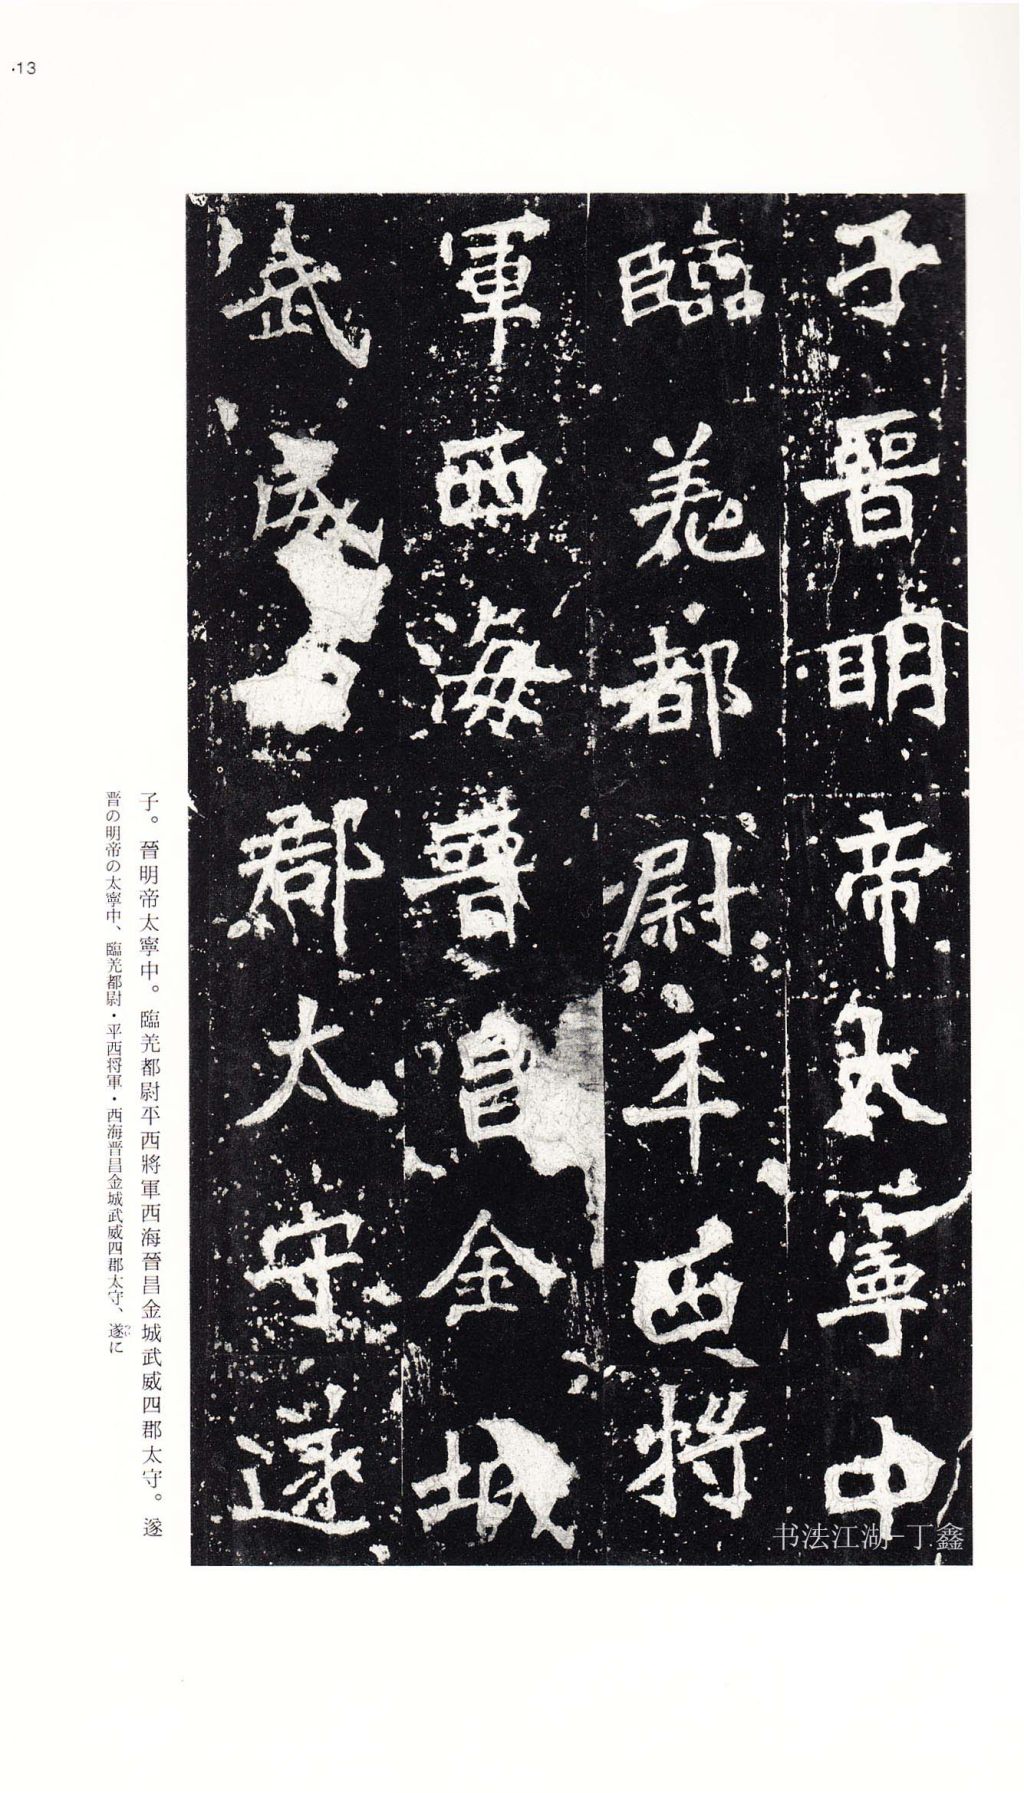 ·13
子晉明帝太寧中
臨羌都尉平西將
軍西海晉昌金城
武威四郡太守遂
子。晉明帝太寧中。臨羌都尉平西將軍西海晉昌金城武威四郡太守。遂
晋の明帝の太寧中、臨羌都尉・平西将軍・西海晋昌金城武威四郡太守、遂に
书法江湖-丁鑫